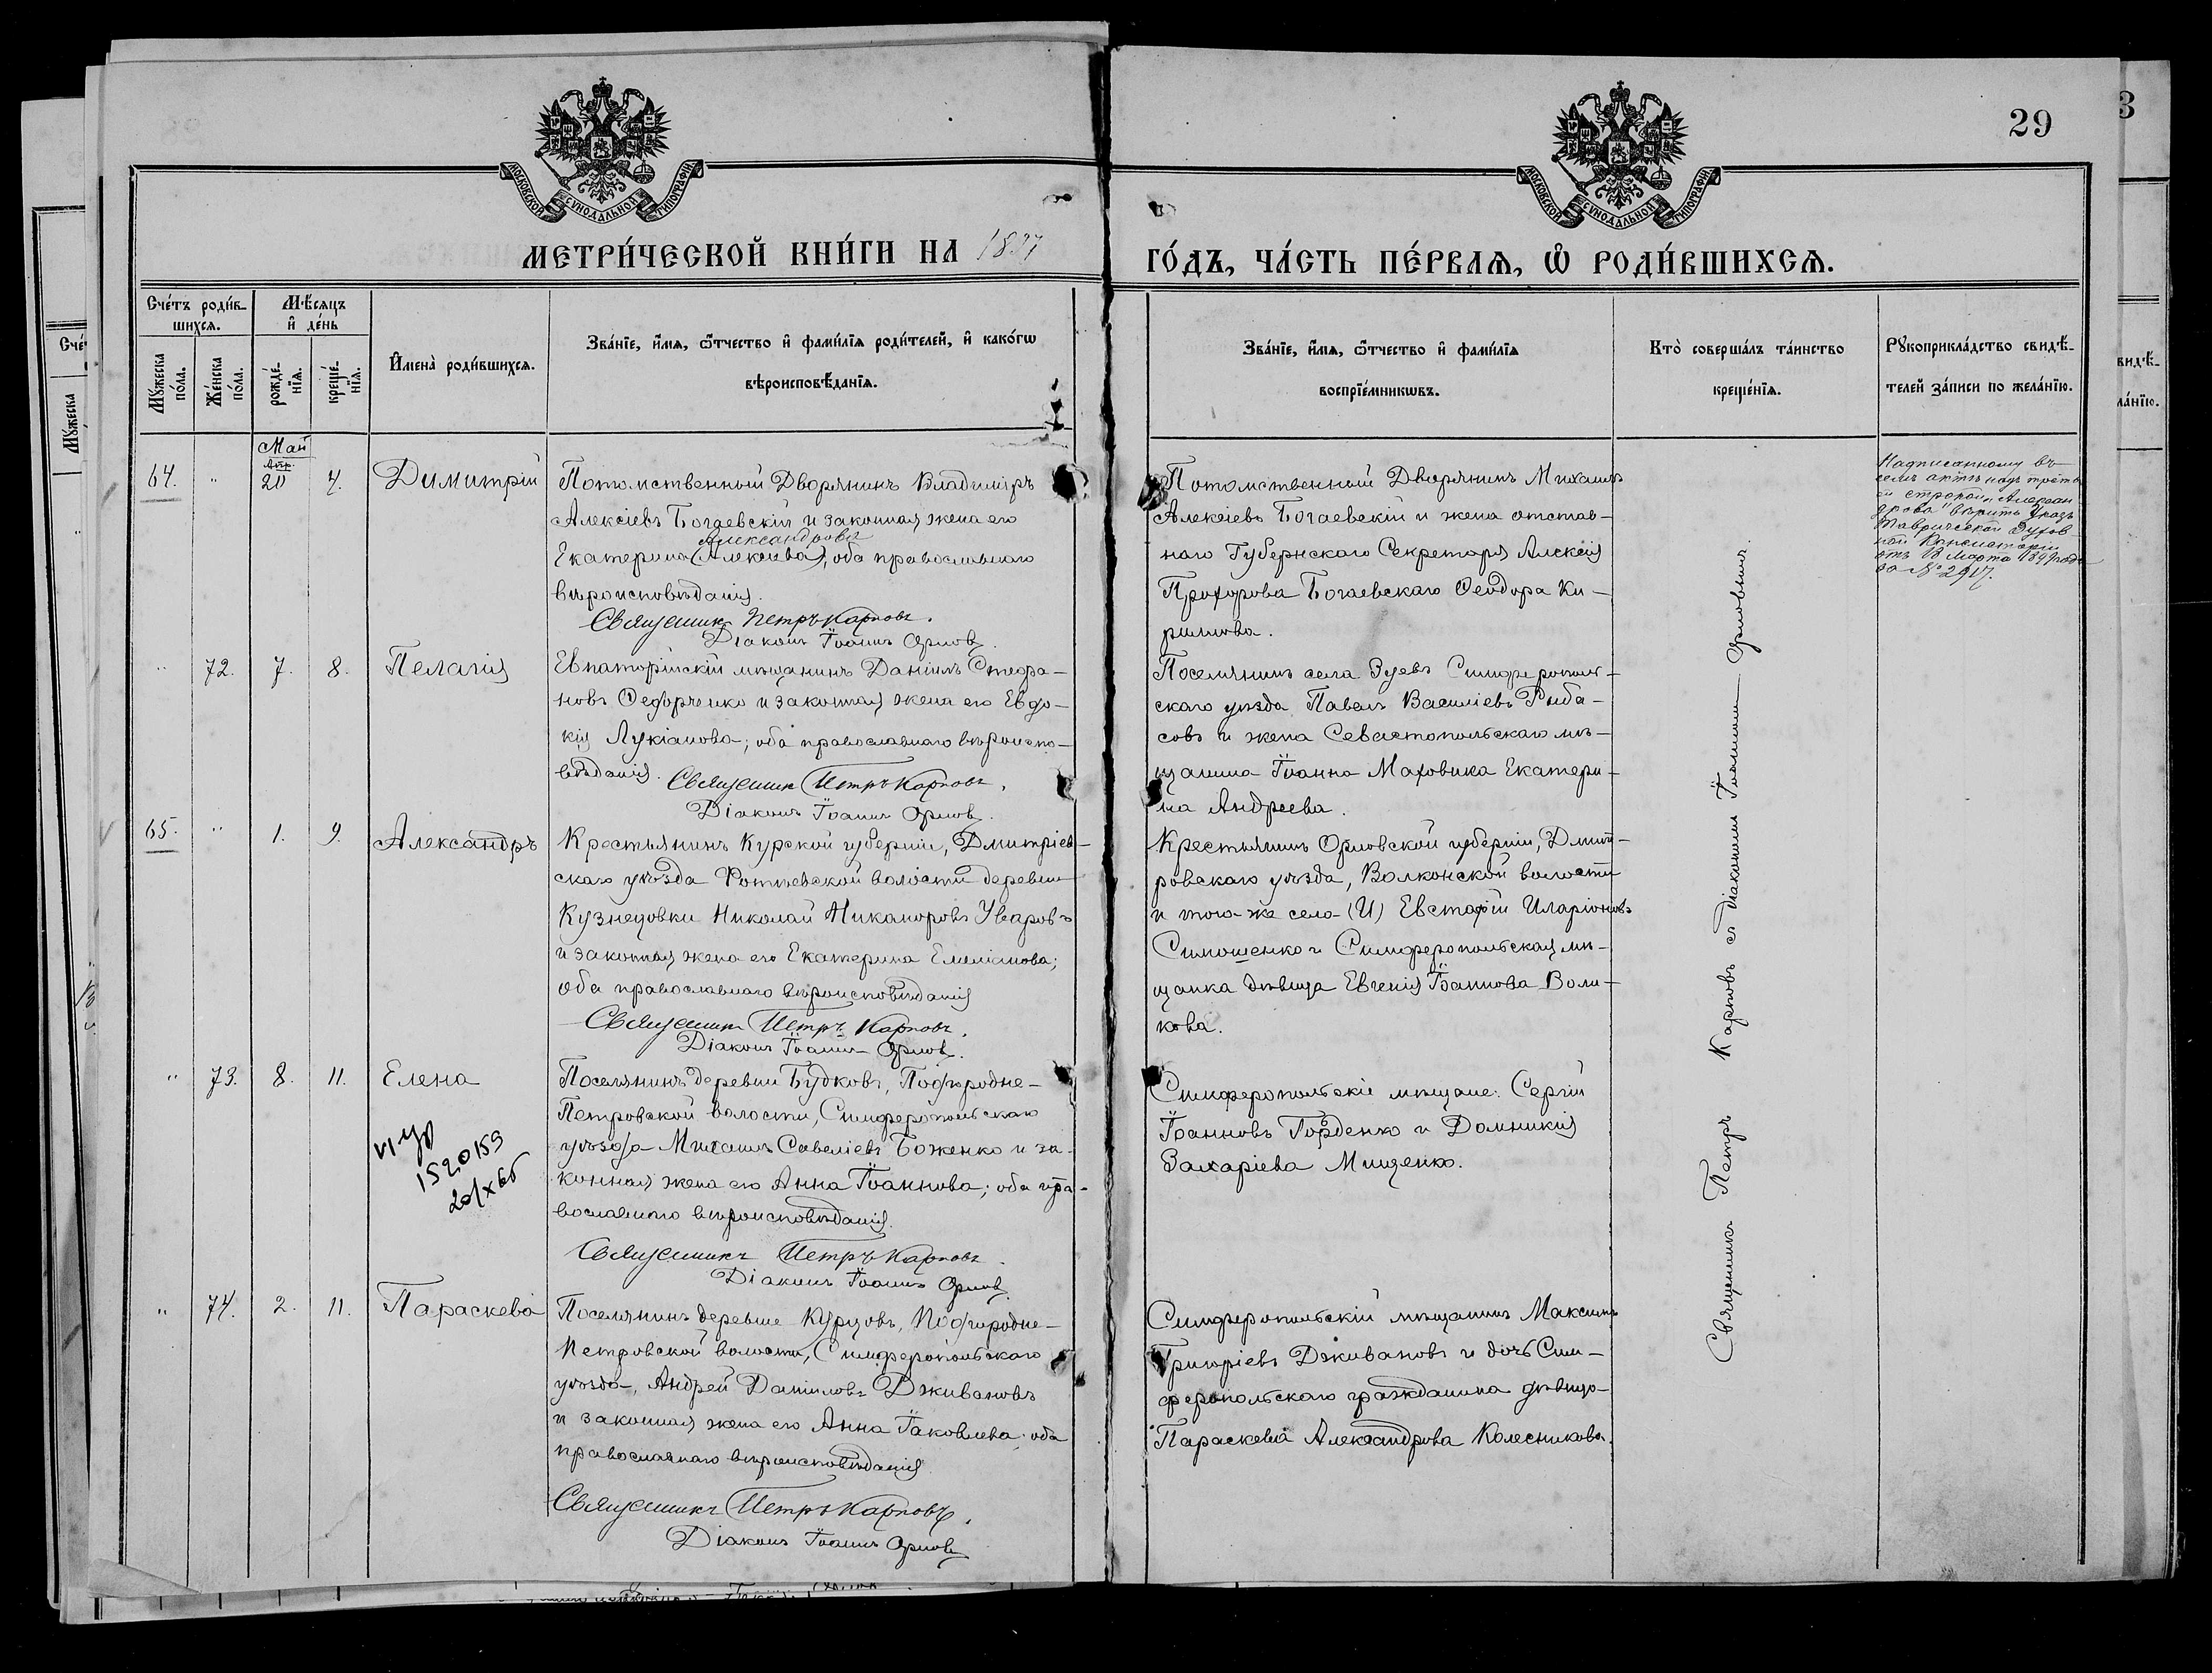 29
МОСКОВСКОЙ СУНОДАЛЬНОЙ ТИПОГРАФІИ
МОСКОВСКОЙ СУНОДАЛЬНОЙ ТИПОГРАФІИ
МЕТРИ́ЧЕСКОЙ КНИ́ГИ НА
ГО́ДЪ, ЧА́СТЬ ПЕ́РВАЯ, Ѡ҆ РОДИ́ВШИХСЯ.
Сче́тъ роди́в-
шихся.
Мѣ́сяцъ
и҆ де́нь
Мꙋ́жеска по́ла.
Же́нска по́ла.
рожде́-
нїя.
креще́-
нїя.
И҆мена̀ роди́вшихся.
Зва́нїе, и҆́мя, ѻ҆́тчество и҆ фами́лїя роди́телей, и҆ како́гѡ
вѣроисповѣ́данїя.
Зва́нїе, и҆́мя, ѻ҆́тчество и҆ фами́лїя
воспрїе́мникѡвъ.
Кто̀ соверша́лъ та́инство
креще́нїя.
Рꙋкоприкла́дство свидѣ́-
телей за́писи по жела́нїю.
Май
Апр.
64. " 20 4. Димитрій
Потомственный Дворянинъ Владиміръ
Алексіевъ Богаевскій и законная жена его
Александрова
Екатерина (Алексіева), оба православнаго
вѣроисповѣданія.
Священникъ Петръ Карповъ.
Діаконъ Іоаннъ Орловъ.
Потомственный Дворянинъ Михаилъ
Алексіевъ Богаевскій и жена отстав-
наго Губернскаго Секретаря Алексія
Прохорова Богаевскаго Ѳеодора Ки-
риллова.
Надписанному въ
семъ актѣ надъ треть-
ей строкой "Алексан
дрова" вѣрить Указъ
Таврической Духов-
ной Консисторіи
отъ 18 Марта 1899 года
за № 2917.
" 72. 7. 8. Пелагія
Евпаторійскій мѣщанинъ Даніилъ Стефа-
новъ Ѳедорченко и законная жена его Евдо-
кія Лукіанова; оба православнаго вѣроиспо-
вѣданія. Священникъ Петръ Карповъ.
Діаконъ Іоаннъ Орловъ.
Поселянинъ села Зуевъ Симферополь-
скаго уѣзда Павелъ Василіевъ Рыба-
совъ и жена Севастопольскаго мѣ-
щанина Іоанна Маховика Екатери-
на Андреева.
65. " 1. 9. Александръ
Крестьянинъ Курской губерніи, Дмитріев-
скаго уѣзда Фотѣевской волости деревни
Кузнецовки Николай Никаноровъ Уваровъ
и законная жена его Екатерина Емеліанова;
оба православнаго вѣроисповѣданія
Священникъ Петръ Карповъ.
Діаконъ Іоаннъ Орловъ.
Крестьянинъ Орловской губерніи, Дмит-
ровскаго уѣзда, Волконской волости
и того-же села (И) Евстафій Иларіоновъ
Симошенко и Симферопольская мѣ-
щанка дѣвица Евгенія Іоаннова Воли-
кова.
" 73. 8. 11. Елена
Поселянинъ деревни Будковъ, Подгородне-
Петровской волости, Симферопольскаго
уѣзда Михаилъ Савеліевъ Боженко и за-
конная жена его Анна Іоаннова; оба пра-
вославнаго вѣроисповѣданія.
Священникъ Петръ Карповъ.
Діаконъ Іоаннъ Орловъ.
1520159
Симферопольскіе мѣщане: Сергій
Іоанновъ Горденко и Домникія
Захаріева Мищенко.
" 74. 2. 11. Параскева
Поселянинъ деревни Курцовъ, Подгородне-
Петровской волости, Симферопольскаго
уѣзда, Андрей Даниловъ Дживановъ
и законная жена его Анна Іаковлева; оба
православнаго вѣроисповѣданія
Священникъ Петръ Карповъ.
Діаконъ Іоаннъ Орловъ
Симферопольскій мѣщанинъ Максимъ
Григоріевъ Дживановъ и дочь Сим-
феропольскаго гражданина дѣвица
Параскева Александрова Колесникова.
Священникъ Петръ Карповъ съ діакономъ Іоанномъ Орловымъ.